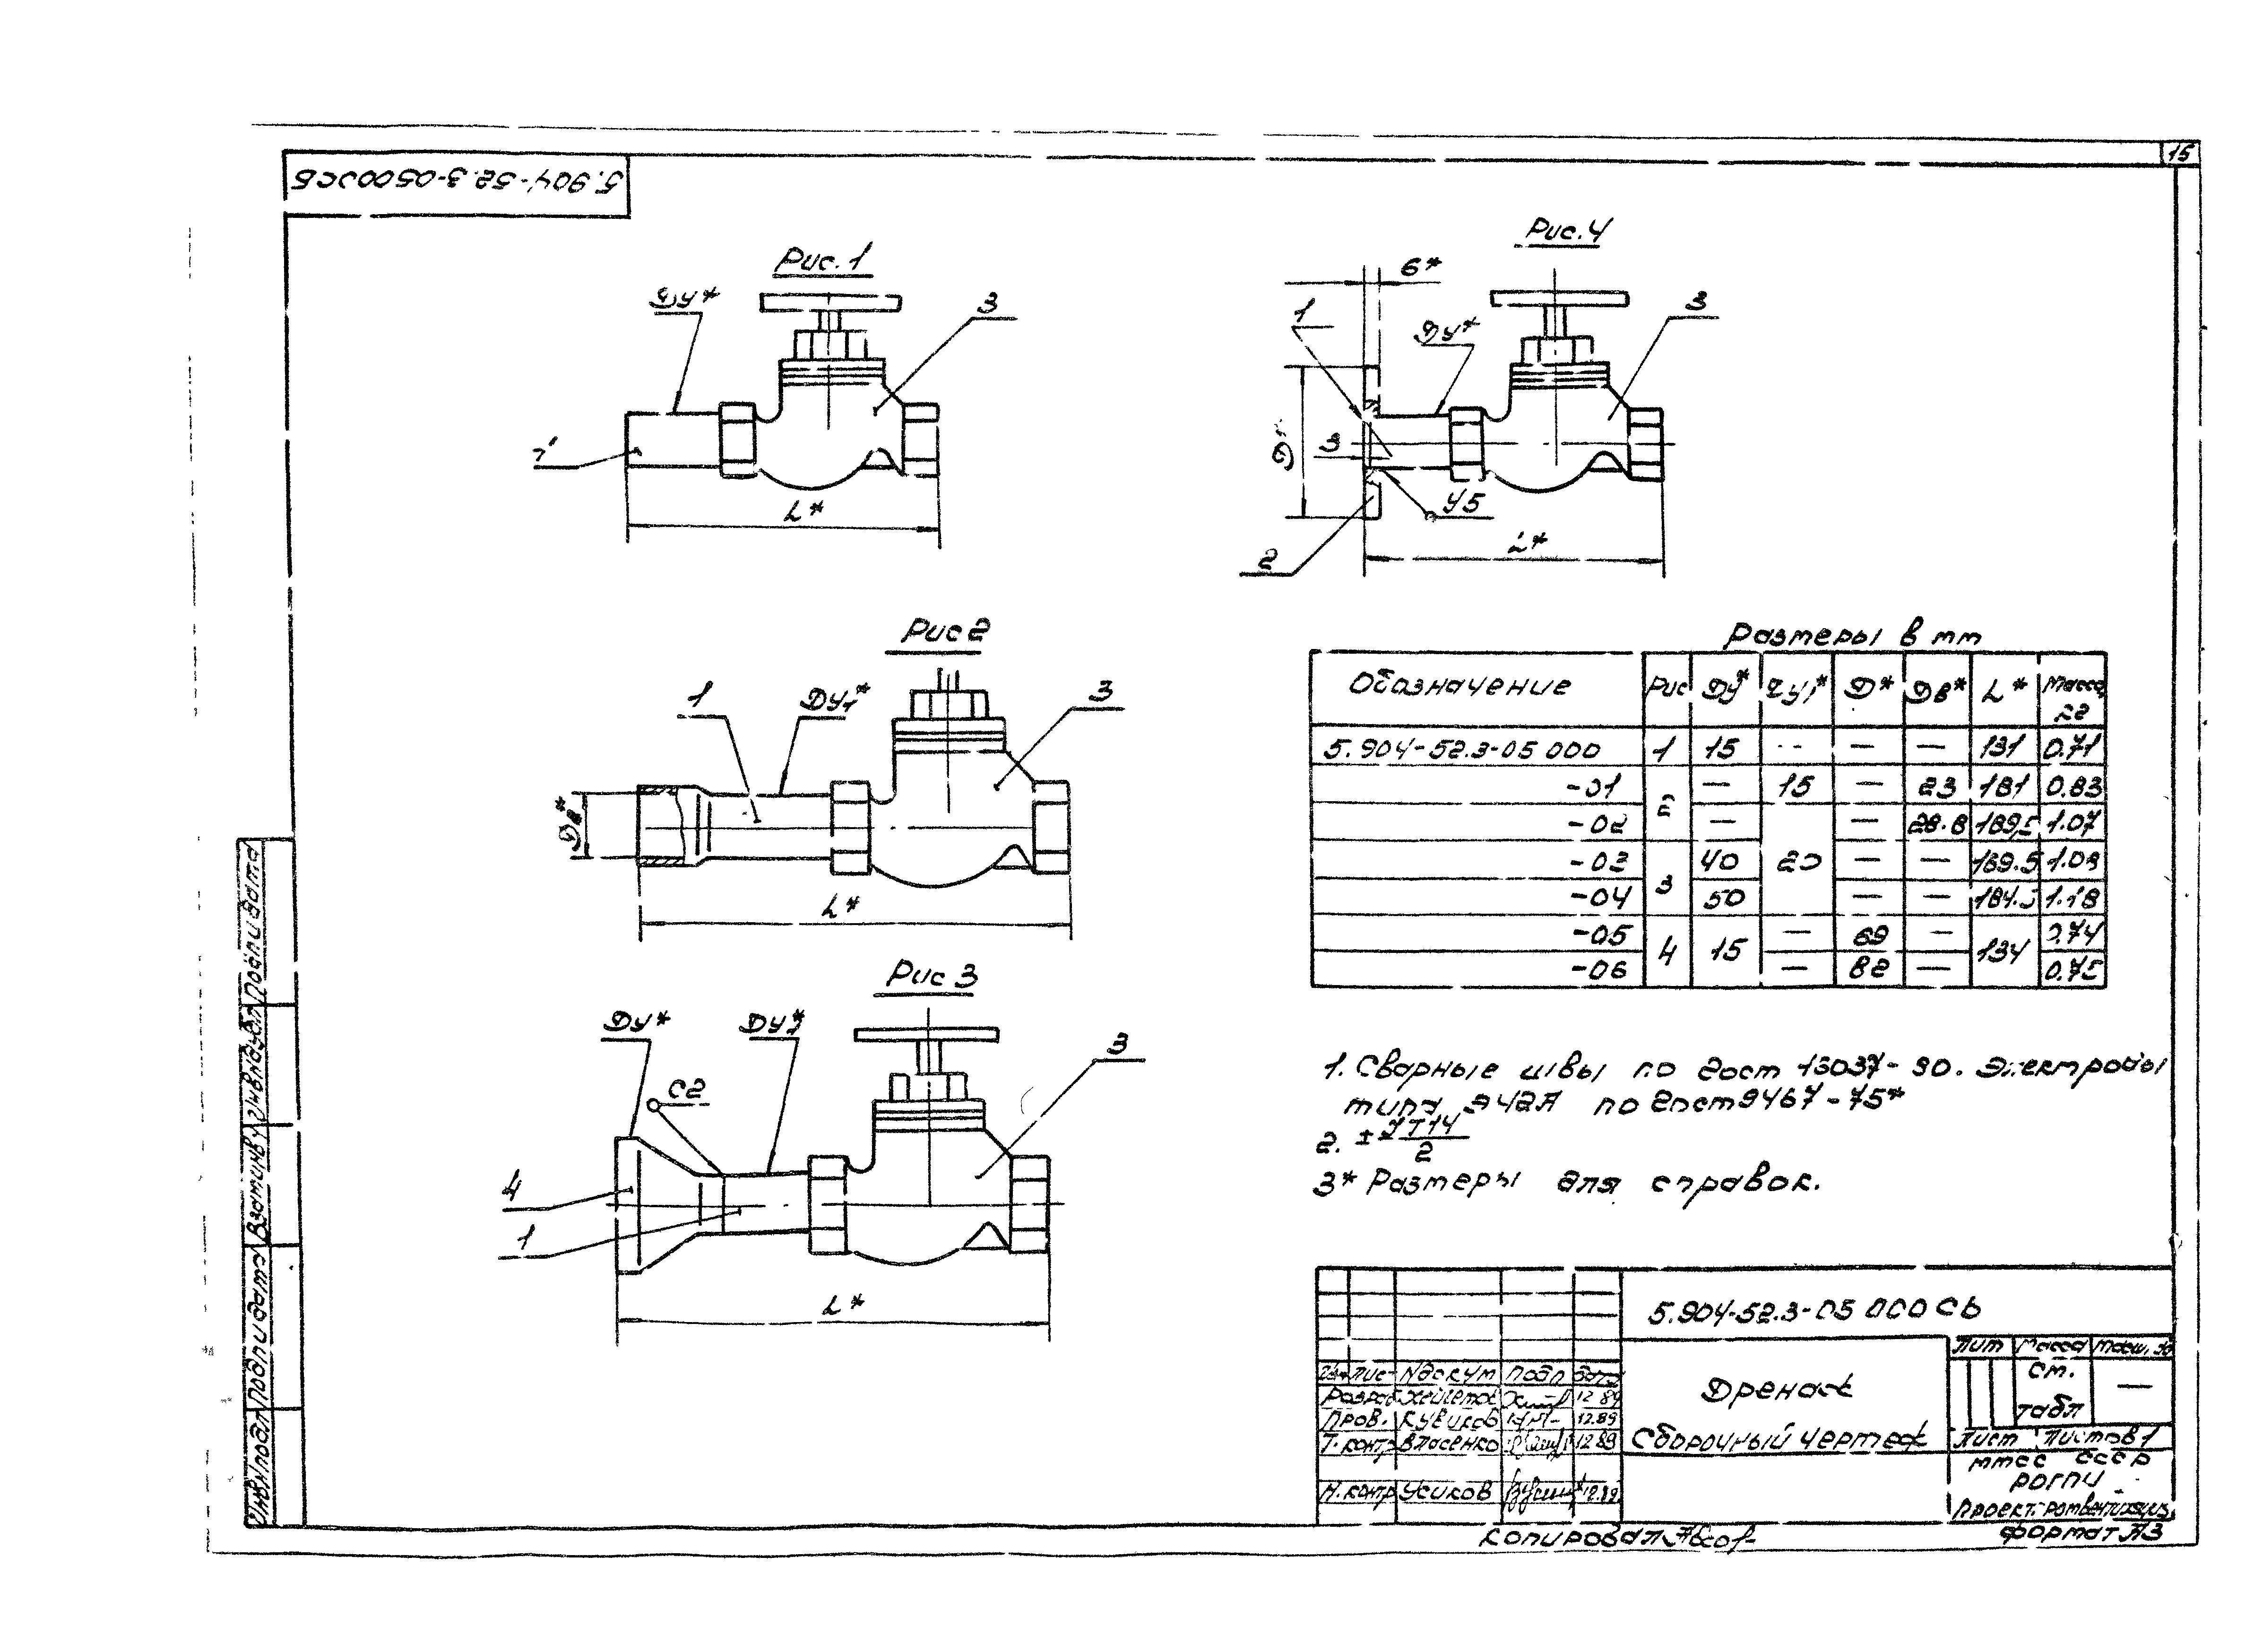 15
5.904-52.3-05000СБ
Рис. 1
Ду*
3
1
L*
Рис. 4
6*
1
Ду*
3
Д*
3
У5
2
L*
Рис 2
1
Ду1*
3
Дв*
L*
Рис 3
Ду*
Ду1*
3
С2
4
1
L*
Размеры в мм
Обозначение Рис Ду* Ду1* Д* Дв* L* Масса кг
5.904-52.3-05 000 1 15 -- — — 131 0.71
-01 2 — 15 — 23 181 0.83
-02 — — 28.8 189,5 1.07
-03 3 40 20 — — 169.5 1.03
-04 50 — — 184.5 1.18
-05 4 15 — 69 — 134 0.74
-06 — 82 — 0.75
1. Сварные швы по гост 16037-80. Электроды
типа Э42А по гост 9467-75*
2. ± JT14/2
3* Размеры для справок.
5.904-52.3-05 000 СБ
Лит Масса Масшт
Изм Лист N докум Подп Дата
Разраб 12 89
Пров. Кувиков 12.89
Т. контр Власенко 12 89
Н. контр Усиков 12.89
Дренаж
Сборочный чертеж
см.
табл
—
Лист Листов 1
ММСС СССР
РОГПИ
Проектпромвентиляция
Копировал
Формат А3
Инв N подл Подп и дата Взам инв N Инв N дубл Подп и дата